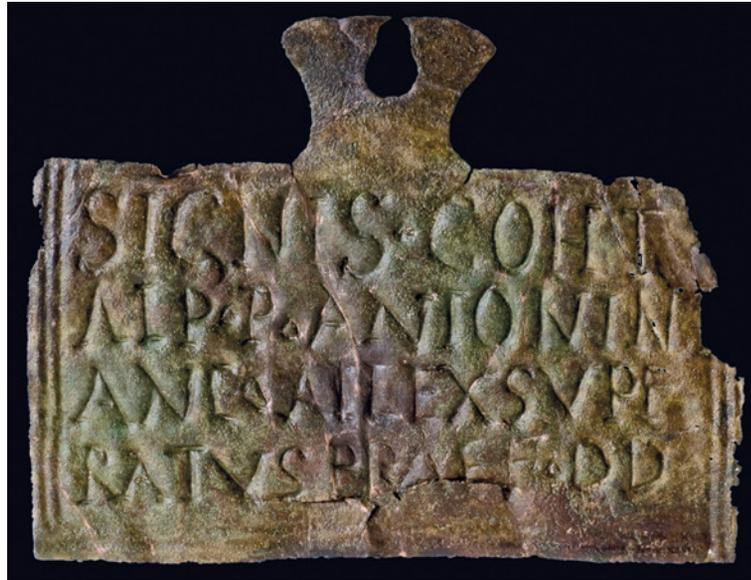 SIGNIS·COH
P·P·ANTONIN
EXSVPE
RATVS PRAEF·D D